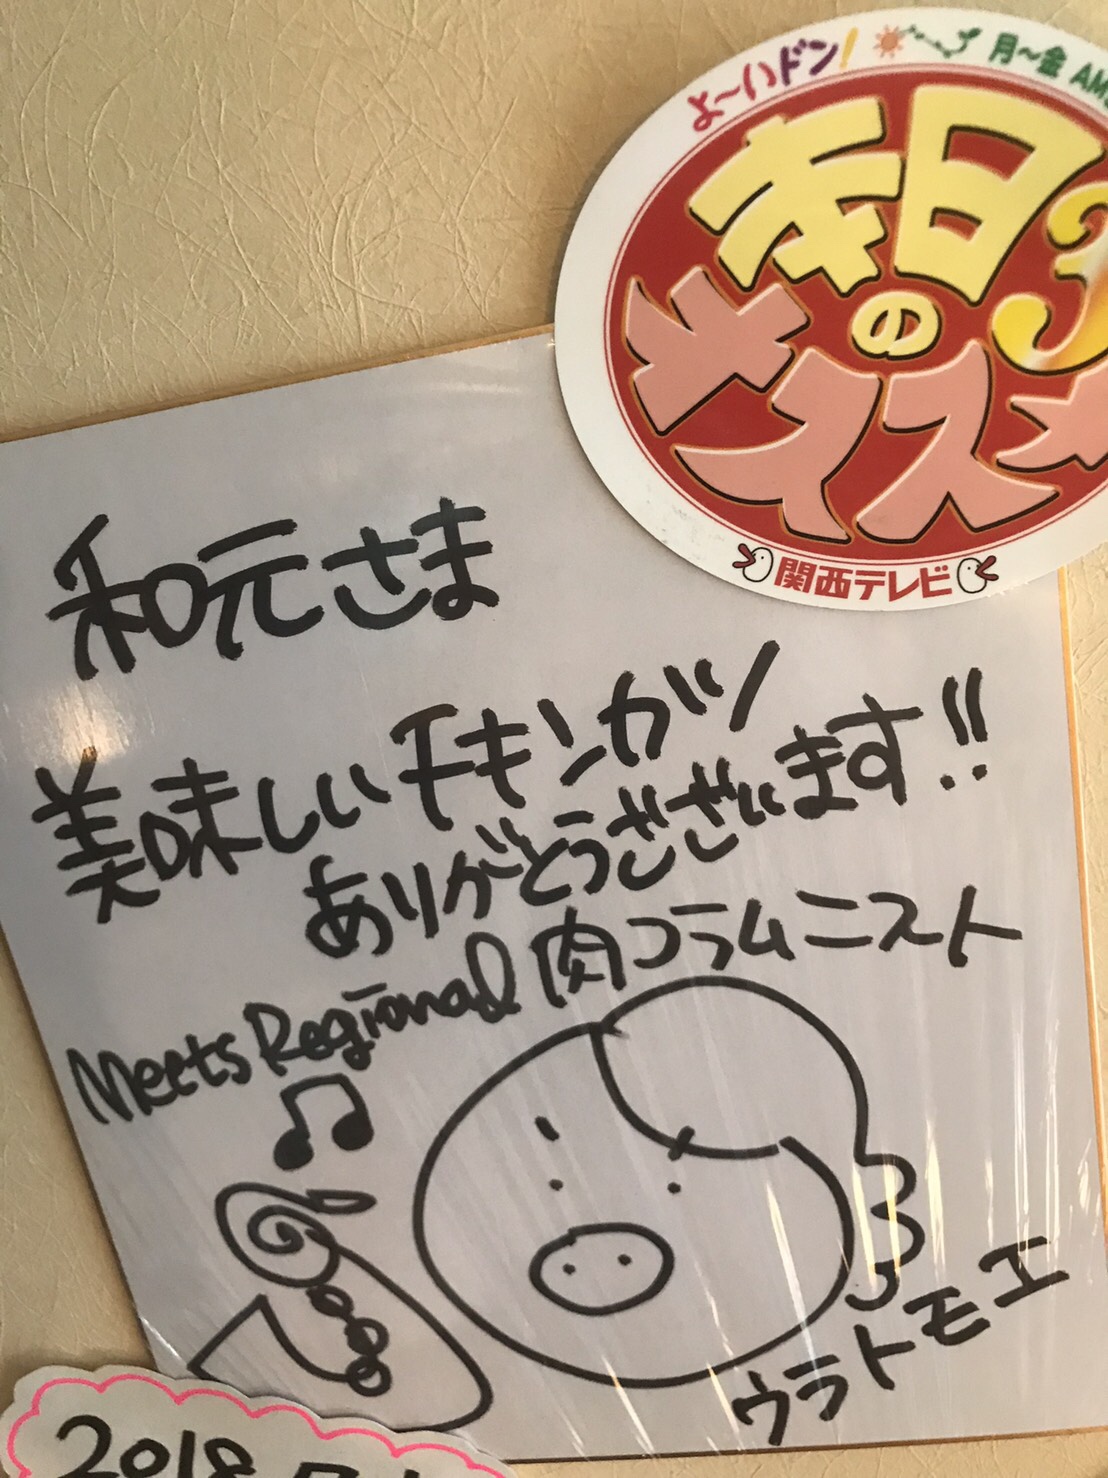 よ〜いドン！ 月〜金 AM
本日の
オススメ
3
関西テレビ
和元さま
美味しいチキンカツ
ありがとうございます!!
Meets Regional 肉コラムニスト
ウラトモエ
2018